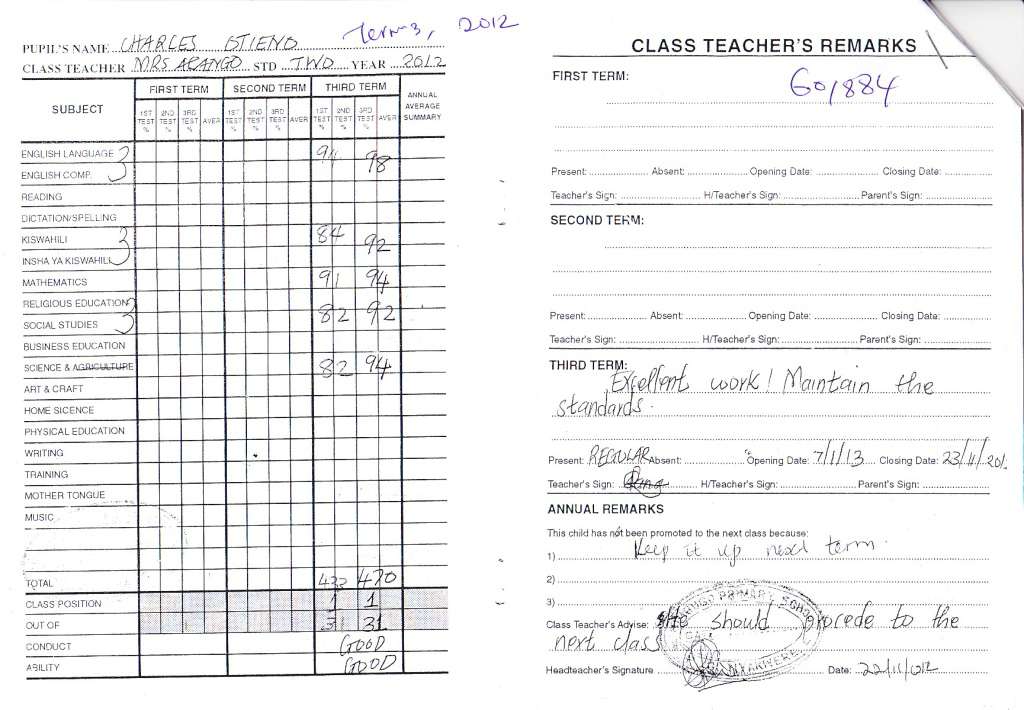 Term 3, 2012
PUPIL'S NAME CHARLES OTIENO
CLASS TEACHER MRS ARANGO STD TWO YEAR 2012
SUBJECT FIRST TERM SECOND TERM THIRD TERM ANNUAL AVERAGE SUMMARY
1ST TEST % 2ND TEST % 3RD TEST % AVER 1ST TEST % 2ND TEST % 3RD TEST % AVER 1ST TEST % 2ND TEST % 3RD TEST % AVER
ENGLISH LANGUAGE 94 98
ENGLISH COMP.
READING
DICTATION/SPELLING
KISWAHILI 84 92
INSHA YA KISWAHILI
MATHEMATICS 91 94
RELIGIOUS EDUCATION 82 92
SOCIAL STUDIES
BUSINESS EDUCATION
SCIENCE & AGRICULTURE 82 94
ART & CRAFT
HOME SICENCE
PHYSICAL EDUCATION
WRITING
TRAINING
MOTHER TONGUE
MUSIC
TOTAL 433 470
CLASS POSITION 1 1
OUT OF 31 31
CONDUCT GOOD
ABILITY GOOD
CLASS TEACHER'S REMARKS
FIRST TERM: GO/884
Present: Absent: Opening Date: Closing Date:
Teacher's Sign: H/Teacher's Sign: Parent's Sign:
SECOND TERM:
Present: Absent: Opening Date: Closing Date:
Teacher's Sign: H/Teacher's Sign: Parent's Sign:
THIRD TERM:
Excellent work! Maintain the
standards.
Present: REGULAR Absent: Opening Date: 7/1/13 Closing Date: 23/11/201
Teacher's Sign: H/Teacher's Sign: Parent's Sign:
ANNUAL REMARKS
This child has not been promoted to the next class because:
1) Keep it up next term.
2)
3)
PRIMARY SCHOOL
Class Teacher's Advise: He should procede to the
next class
Headteacher's Signature Date: 22/11/012